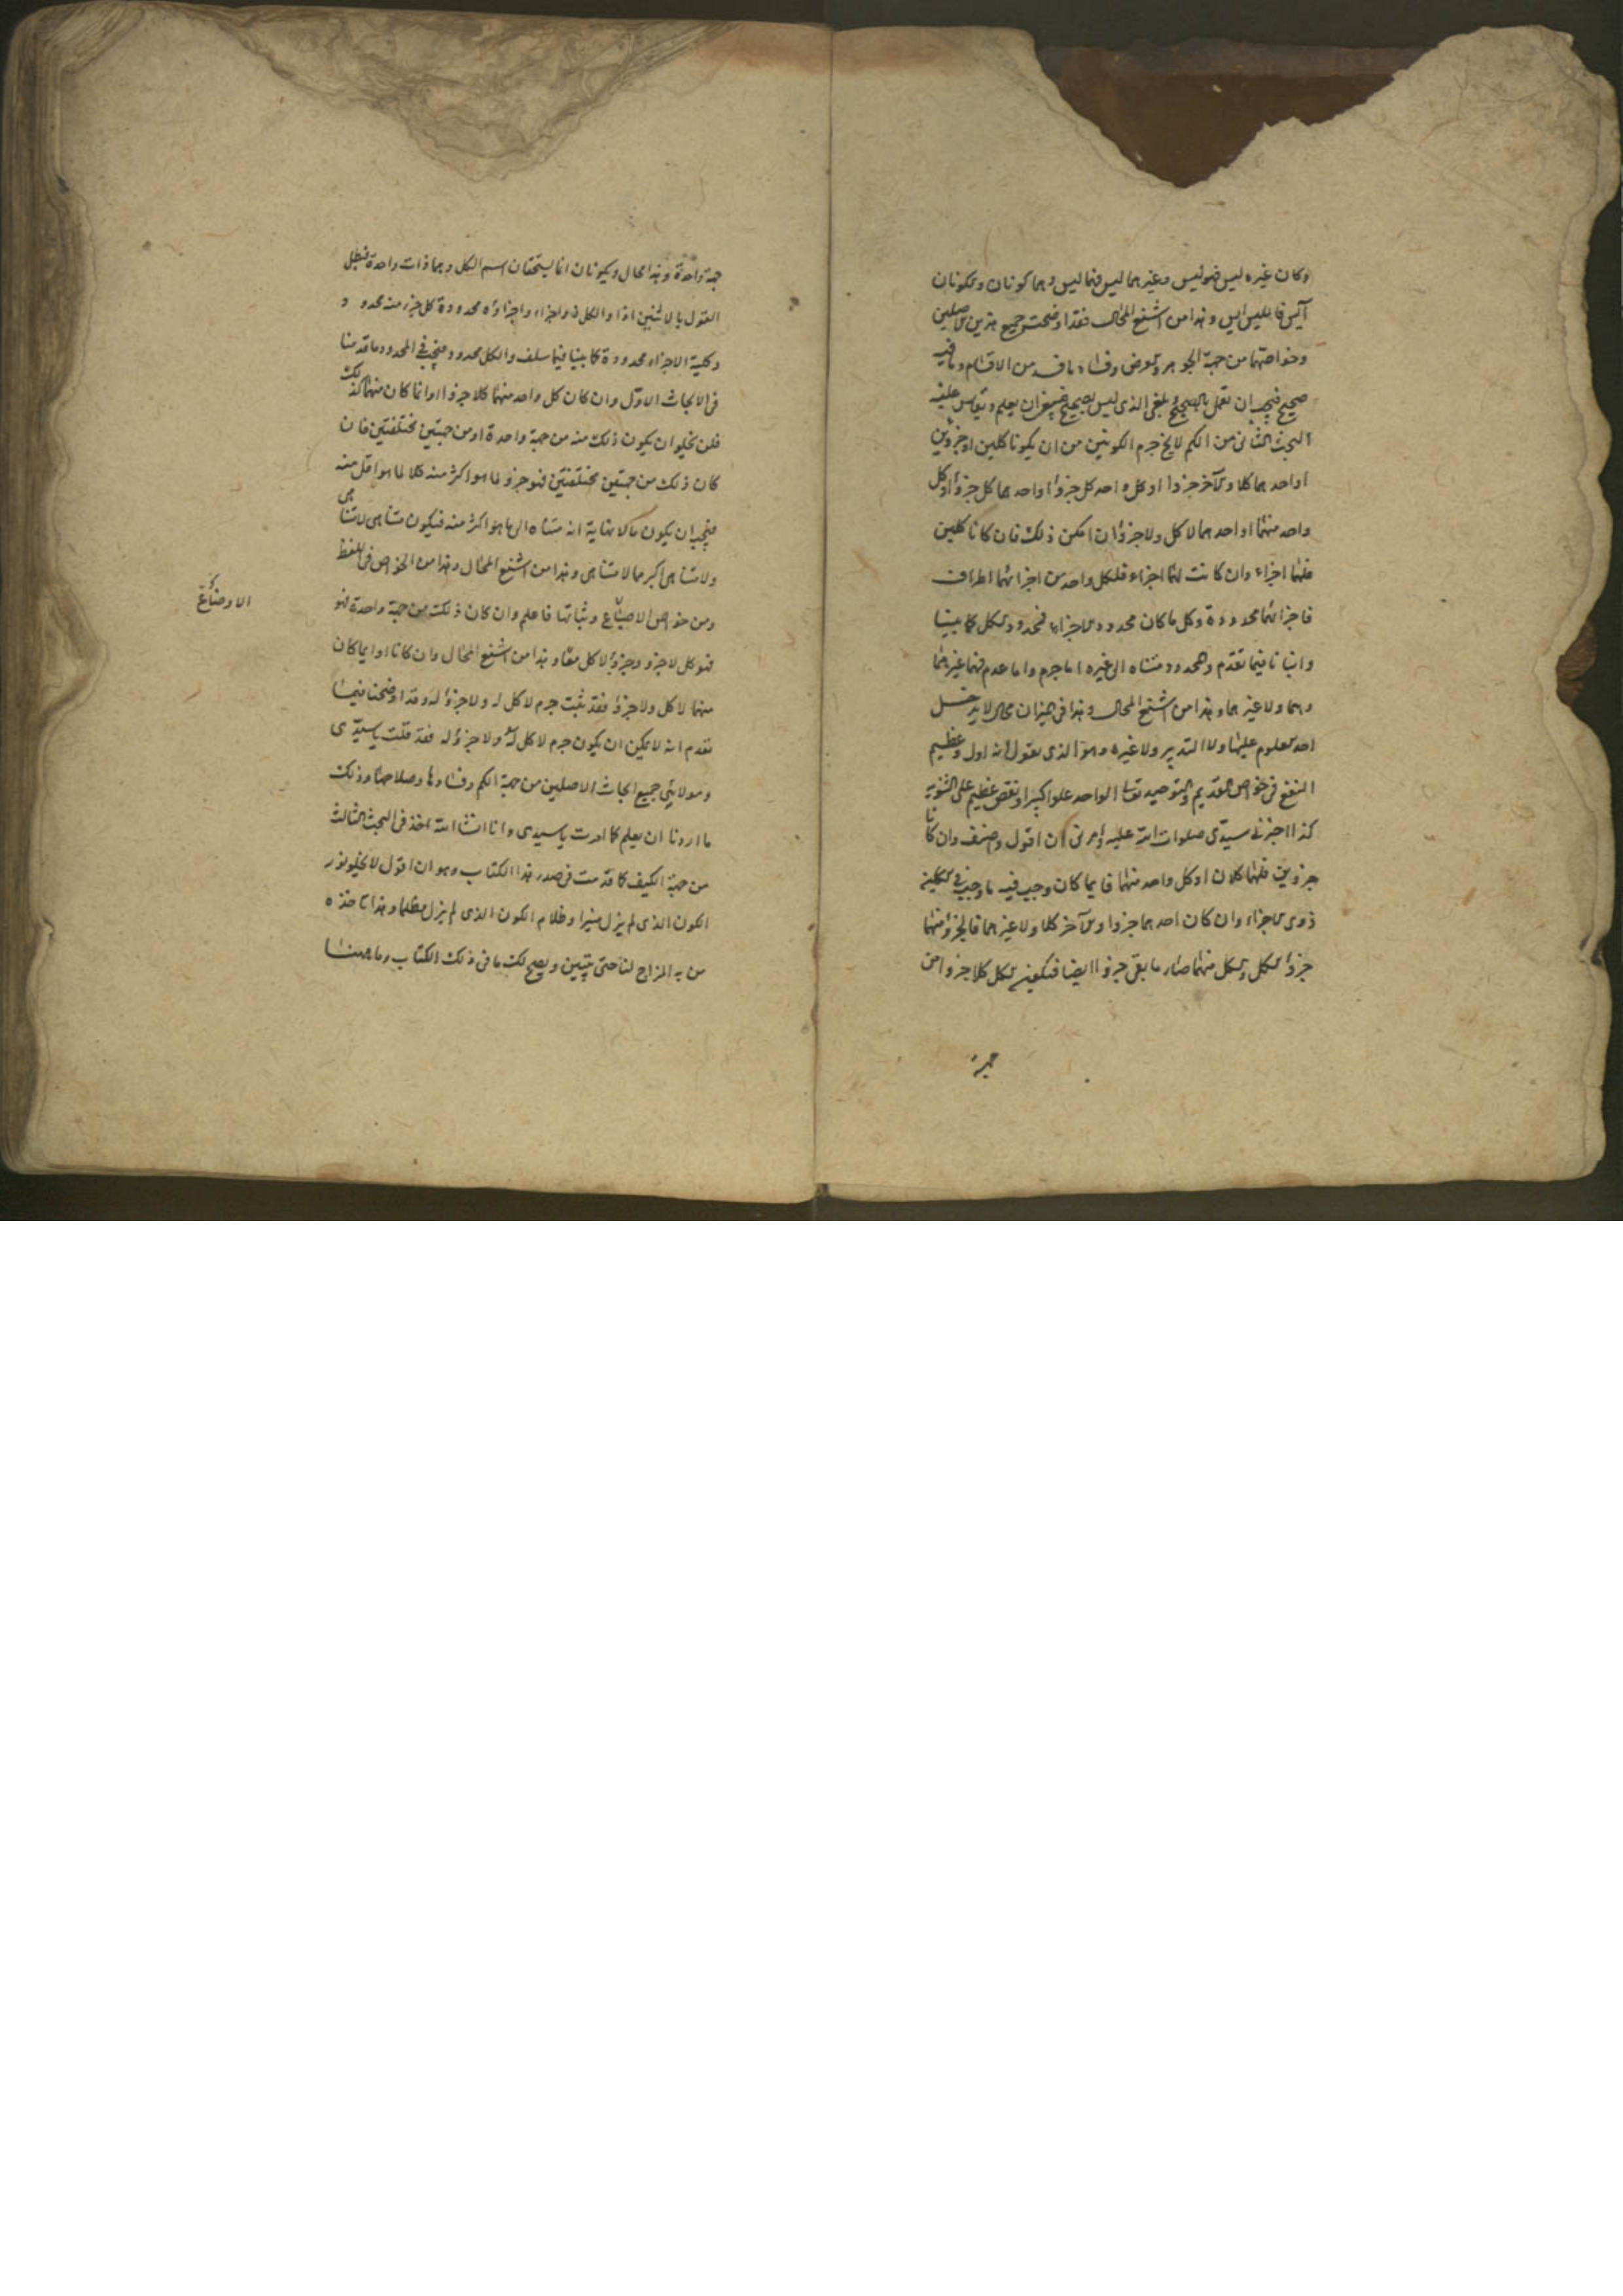 وكان غيره ليس فهو ليس وغيرهما ليس فهما ليس وهما كونان ويكونان
آيس فالليس ايس وهذا من اشنع المحال فقد اوضحت جميع هذين الاصلين
وخواصهما من جهة الجوهر والعرض وفساد ما فسد من الاقسام وما فيه
صحيح فيجب ان تعمل بالصحيح ويلغى الذي ليس بصحيح فينبغي ان يعلم ويقاس عليه
البحث الثاني من الكم لا يخ جرم الكونين من ان يكونا كلين او جزوين
او احدهما كلا والآخر جزوا او كل واحد كل جزوا او احدهما كل جزوا او كل
واحد منهما او احدهما لا كل ولا جزوا ان امكن ذلك فان كانا كلين
فلهما اجزاء وان كانت لهما اجزاء فلكل واحد من اجزائهما اطراف
فاجزائهما محدودة وكل ما كان محدود الاجزاء فمحدود الكل كما بينا
واتيانا فيما تقدم والمحدود متناه الى غيره اما جرم واما عدم فهما غيرهما
وهما ولا غيرهما وهذا من اشنع المحال وهذا في الميزان محال لا يدخل
احد العلوم عليها ولا التدبير ولا غيره وهو الذي يقول انه اول وعظيم
النفع في خواص القديم والتوحيد تعالى الواحد علوا كبيرا ونقض عظيم على الثنوية
كذا اخبرني سيدي صلوات الله عليه وامرني ان اقول واصنف وان كانا
جزوين فلهما كلان او كل واحد منهما فايما كان وجب فيه ما وجب في الكلية
ذوى الاجزاء وان كان احدهما جزوا والآخر كلا ولا غيرهما فالجزو منهما
جزو الكل والكل منهما صار ما بقى جزوا ايضا فيكون الكل كلا جزوا من
جهة
جهة واحدة وهذا محال ويكونان انما يستحقان اسم الكل وهما ذات واحدة فبطل
القول بالاثنين اذا والكل ذو اجزاء واجزاؤه محدودة كل جزء منه محدود
وكلية الاجزاء محدودة كما بينا فيما سلف والكل محدود فيجب في المحدود ما قدمنا
في الابحاث الاول وان كان كل واحد منهما كلا جزوا او انما كان منهما كذلك
فلن يخلو ان يكون ذلك منه من جهة واحدة او من جهتين مختلفتين فان
كان ذلك من جهتين مختلفتين فهو جزو لما هو اكثر منه كلا لما هو اقل منه
فيجب ان يكون مالا نهاية انه متناه الى ما هو اكثر منه فيكون متناهى لا متناهى
ولا متناهى اكبر مما لا متناهى وهذا من اشنع المحال وهذا من الخواص في اللفظ
ومن خواص الاصباغ وثباتها فاعلم وان كان ذلك من جهة واحدة فهو
الاوضاع
فهو كل لا جزو وجزو لا كل معا وهذا من اشنع المحال وان كانا او ايما كان
منهما لا كل ولا جزو فقد ثبت جرم لا كل له ولا جزو له وقد اوضحنا فيما
تقدم انه لا يمكن ان يكون جرم لا كل له ولا جزو له فقد قلت يا سيدي
ومولائي جميع ابحاث الاصلين من جهة الكم وفسادها وصلاحها وذلك
ما اردنا ان يعلم كما امرت يا سيدي وانا انشا الله آخذ في البحث الثالث
من جهة الكيف كما قدمت في صدر هذا الكتاب وهو ان اقول لا يخلو نور
الكون الذي لم يزل منيرا وظلام الكون الذي لم يزل مظلما وهذا
من به المزاج لنا حتى يتبين ويصح لك ما في ذلك الكتاب وما ههنا